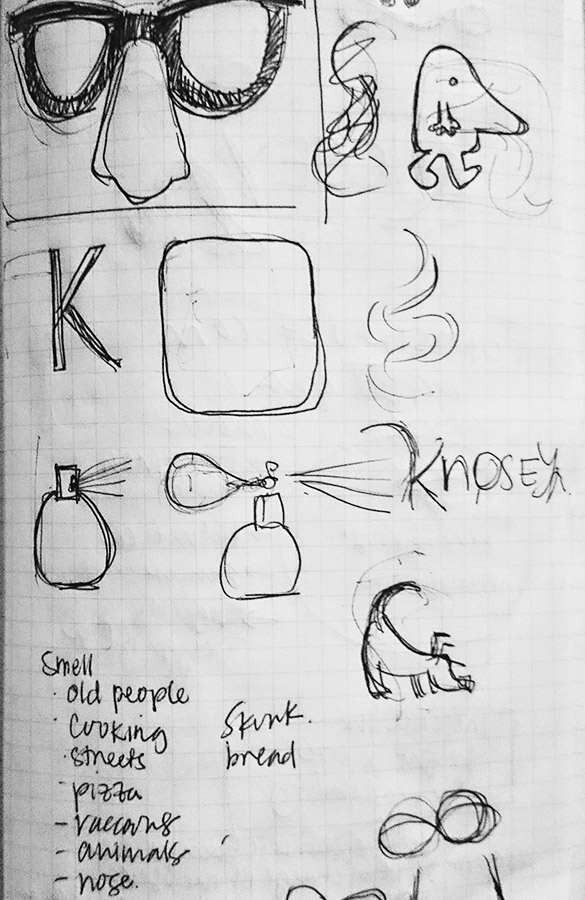 K
Knosey
Smell
· old people
· Cooking
· streets
- pizza
- raccoons
- animals
- nose.
Skunk.
bread